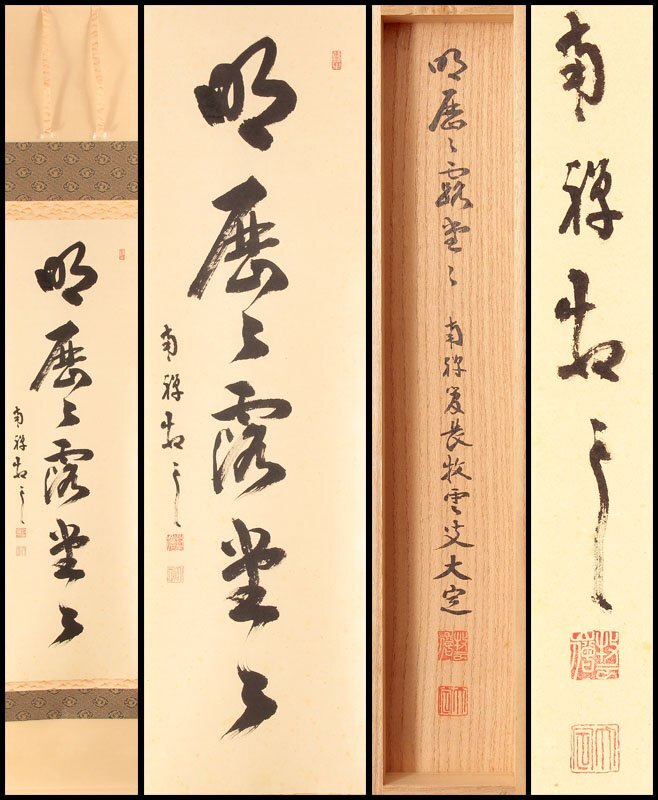 明歴々露堂々
南禅
明歴々露堂々
南禅
明歴々露堂々 南禅管長牧雲叟大定
南禅